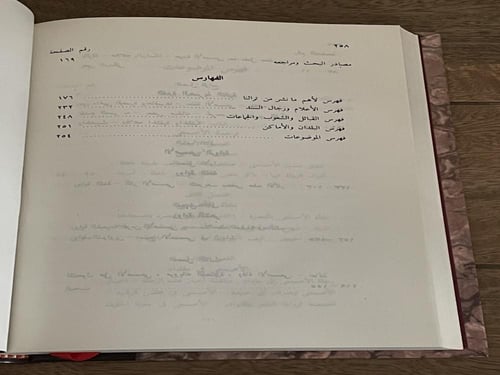 ٢٥٨
رقم الصفحة
مصادر البحث ومراجعه
١٦٩
الفهارس
فهرس لأهم ما نشر من تراثنا ١٧٦
فهرس الأعلام ورجال السند ٢٣٢
فهرس القبائل والشعوب والجماعات ٢٤٨
فهرس البلدان والأماكن ٢٥١
فهرس الموضوعات ٢٥٤